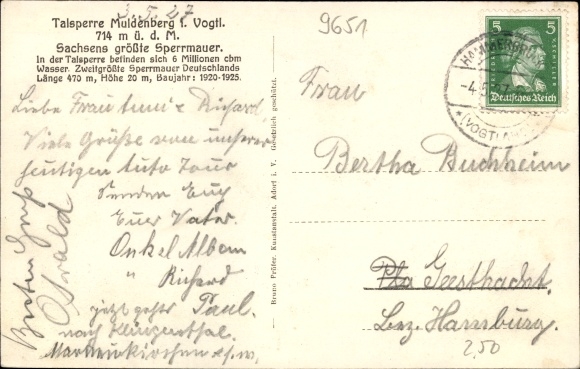 3.5.27
Talsperre Muldenberg i. Vogtl.
714 m ü. d. M.
Sachsens größte Sperrmauer.
In der Talsperre befinden sich 6 Millionen cbm
Wasser. Zweitgrößte Sperrmauer Deutschlands
Länge 470 m, Höhe 20 m, Baujahr: 1920-1925.
Liebe Frau u. Richard
Viele Grüße von unserer
heutigen Auto Tour
senden Euch
Euer Vater.
Onkel Alban
" Richard
jetzt gehts Paul.
nach Klingenthal.
Markneukirchen u.s.w.
Gruß
Oswald
Bruno Prüfer, Kunstanstalt, Adorf i. V. Gesetzlich geschützt.
9651
5 5
Deutsches Reich
HAMMERBRÜCKE
-4.5.27
(VOGTLAND)
Frau
Bertha Buchheim
Geesthacht.
Bez. Hamburg.
2,50